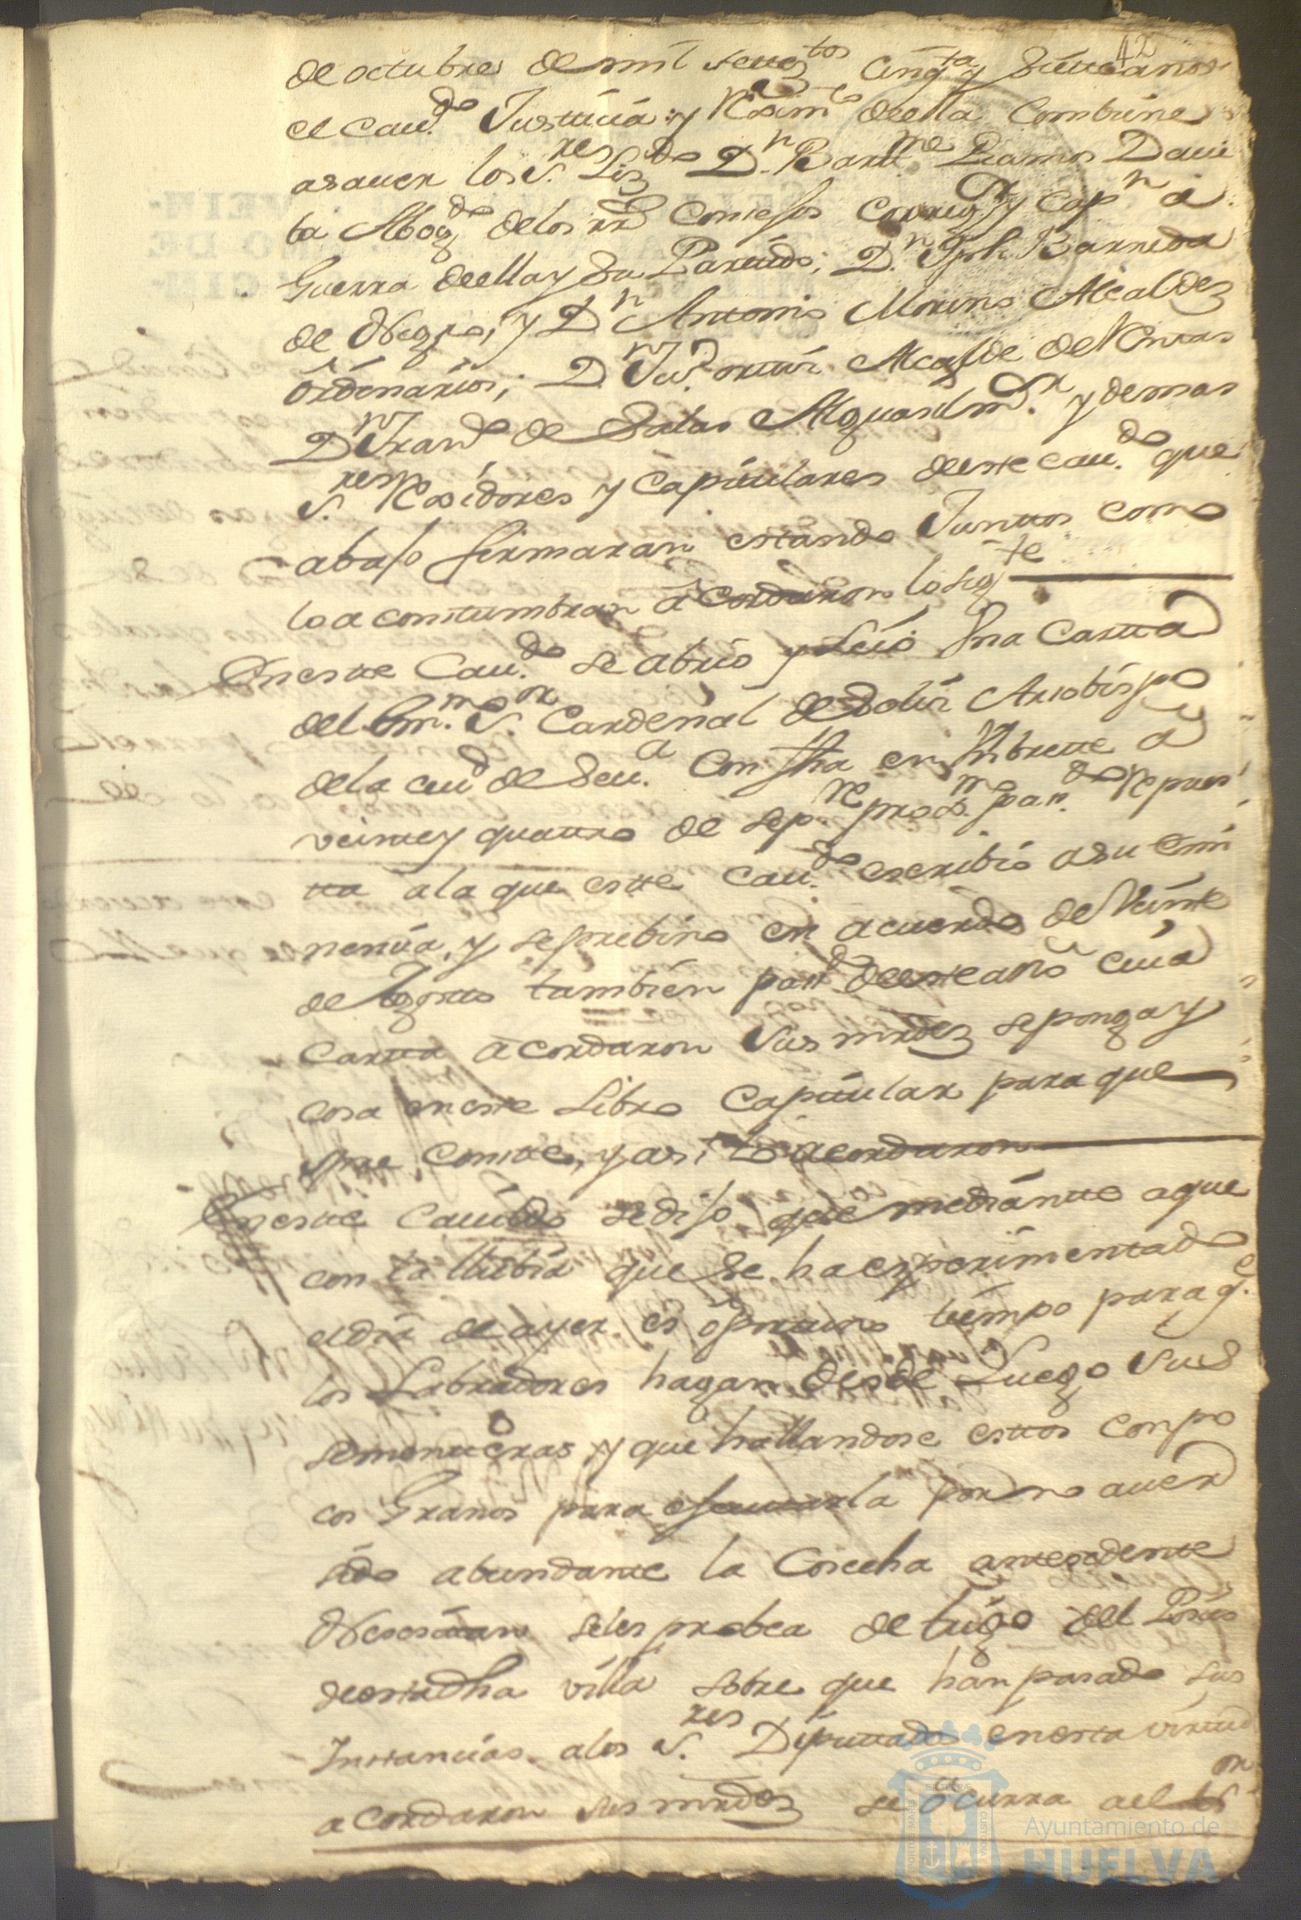 42
de octubre de mil settez.tos cinq.ta y siete años
el Cau.do Justicia y Reximto de ella Combiene
asauer los S.res Liz.do D.n Bartt.me Ramos Daui
ta Abog.do de los RRs Consejos Correg.or y Cap.n a
Guerra de ella y su Partido; D.n Jph Barreda
de Negro, y D.n Antonio Moreno Alcaldes
Ordenarios; D.n Ju.o ortiz Alcalde de Rentas
D.n Fran.co de Salas Alguasil m.or y demas
S.res Rexidores y Capitulares de este Cau.do que
abajo firmaran estando Junttos como
lo acostumbran acordaron lo sig.te
En este Cau.do se abrio y Leio Vna Cartta
del Em.mo S.or Cardenal de Solis Arsobispo
de la ciud de Seu.a Con fha en Vmbrette a
veinte y quattro de sep.re prox.mo pas.do Respues
tta a la que este Cau.do escribio a su Emi
nencia, y se prebino en acuerdo de Veinte
de Agosto tambien pasd de este año cuia
Cartta acordaron sus mrdez se ponga y
cosa en este Libro Capitular para que
spre Conste, y asi lo acordaron
En este Cauildo se dijo que mediante a que
con la llubia que se ha experimentado
el dia de ayer es opttimo tiempo para q.e
los Labradores hagan desde Luego sus
sementteras y que hallandose esttos con po
cos Granos para efecttuarla por no auer
sido abundante la Cosecha antesedente
Nesesitan se les probea de trigo del Posito
de esta dha villa sobre que han pasado sus
Instancias a los S.res Diputtados en esta virtud
acordaron sus mrdez se ocurra a el S.or
Ayuntamiento de
HUELVA